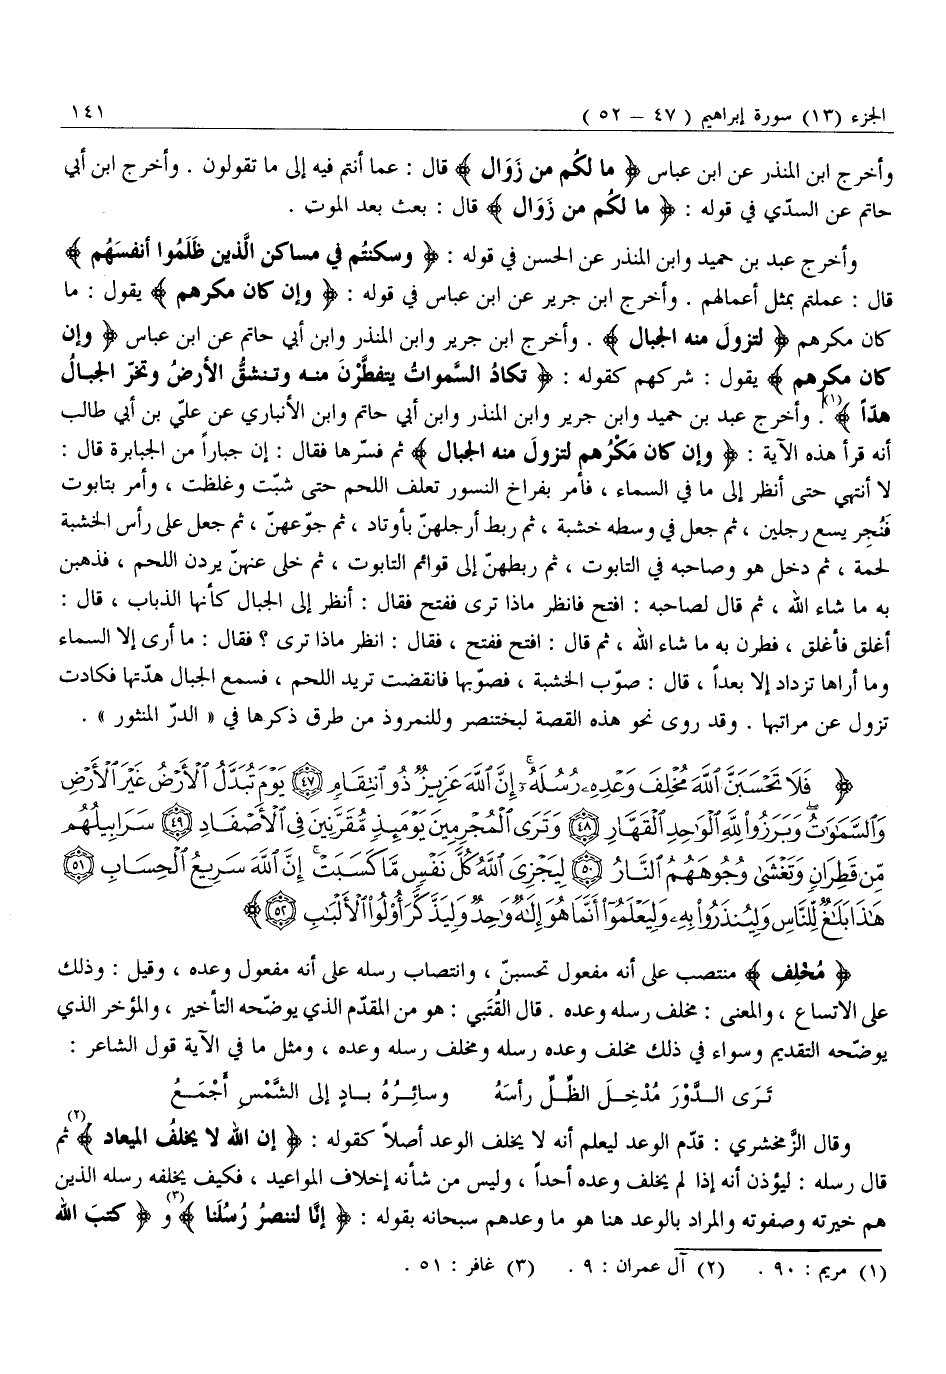 الجزء (١٣) سورة إبراهيم ( ٤٧ – ٥٢ ) ١٤١
وأخرج ابن المنذر عن ابن عباس ﴿ ما لكُم من زَوَال ﴾ قال : عما أنتم فيه إلى ما تقولون . وأخرج ابن أبي
حاتم عن السدّي في قوله : ﴿ ما لكُم من زَوَال ﴾ قال : بعث بعد الموت .
وأخرج عبد بن حميد وابن المنذر عن الحسن في قوله : ﴿ وسكنتُم في مساكن الَّذين ظَلَمُوا أنفسَهُم ﴾
قال : عملتم بمثل أعمالهم . وأخرج ابن جرير عن ابن عباس في قوله : ﴿ وإن كان مكرهم ﴾ يقول : ما
كان مكرهم ﴿ لتزولَ منه الجبال ﴾ . وأخرج ابن جرير وابن المنذر وابن أبي حاتم عن ابن عباس ﴿ وإن
كان مكرهم ﴾ يقول : شركهم كقوله : ﴿ تكادُ السَّمواتُ يتفطَّرْنَ منه وتنشقُّ الأرضُ وتخرّ الجبالُ
هدّاً ﴾(١) . وأخرج عبد بن حميد وابن جرير وابن المنذر وابن أبي حاتم وابن الأنباري عن عليّ بن أبي طالب
أنه قرأ هذه الآية : ﴿ وإن كان مَكْرُهم لتزولَ منه الجبال ﴾ ثم فسّرها فقال : إن جباراً من الجبابرة قال :
لا أنتهي حتى أنظر إلى ما في السماء ، فأمر بفراخ النسور تعلف اللحم حتى شبّت وغلظت ، وأمر بتابوت
فنُجِر يسع رجلين ، ثم جعل في وسطه خشبة ، ثم ربط أرجلهنّ بأوتاد ، ثم جوّعهنّ ، ثم جعل على رأس الخشبة
لحمة ، ثم دخل هو وصاحبه في التابوت ، ثم ربطهنّ إلى قوائم التابوت ، ثم خلى عنهنّ يردن اللحم ، فذهبن
به ما شاء الله ، ثم قال لصاحبه : افتح فانظر ماذا ترى ففتح فقال : أنظر إلى الجبال كأنها الذباب ، قال :
أغلق فأغلق ، فطرن به ما شاء الله ، ثم قال : افتح ففتح ، فقال : انظر ماذا ترى ؟ فقال : ما أرى إلا السماء
وما أراها تزداد إلا بعداً ، قال : صوّب الخشبة ، فصوّبها فانقضت تريد اللحم ، فسمع الجبال هدّتها فكادت
تزول عن مراتبها . وقد روى نحو هذه القصة لبختنصر وللنمروذ من طرق ذكرها في « الدرّ المنثور » .
﴿ فَلَا تَحْسَبَنَّ ٱللَّهَ مُخْلِفَ وَعْدِهِۦ رُسُلَهُۥٓ ۚ إِنَّ ٱللَّهَ عَزِيزٌ ذُو ٱنتِقَامٍ ٤٧ يَوْمَ تُبَدَّلُ ٱلْأَرْضُ غَيْرَ ٱلْأَرْضِ
وَٱلسَّمَٰوَٰتُ ۖ وَبَرَزُوا۟ لِلَّهِ ٱلْوَٰحِدِ ٱلْقَهَّارِ ٤٨ وَتَرَى ٱلْمُجْرِمِينَ يَوْمَئِذٍ مُّقَرَّنِينَ فِى ٱلْأَصْفَادِ ٤٩ سَرَابِيلُهُم
مِّن قَطِرَانٍ وَتَغْشَىٰ وُجُوهَهُمُ ٱلنَّارُ ٥٠ لِيَجْزِىَ ٱللَّهُ كُلَّ نَفْسٍ مَّا كَسَبَتْ ۚ إِنَّ ٱللَّهَ سَرِيعُ ٱلْحِسَابِ ٥١
هَٰذَا بَلَٰغٌ لِّلنَّاسِ وَلِيُنذَرُوا۟ بِهِۦ وَلِيَعْلَمُوٓا۟ أَنَّمَا هُوَ إِلَٰهٌ وَٰحِدٌ وَلِيَذَّكَّرَ أُو۟لُوا۟ ٱلْأَلْبَٰبِ ٥٢ ﴾
﴿ مُخْلِف ﴾ منتصب على أنه مفعول تحسبنّ ، وانتصاب رسله على أنه مفعول وعده ، وقيل : وذلك
على الاتساع ، والمعنى : مخلف رسله وعده . قال القُتَبي : هو من المقدّم الذي يوضّحه التأخير ، والمؤخر الذي
يوضّحه التقديم وسواء في ذلك مخلف وعده رسله ومخلف رسله وعده ، ومثل ما في الآية قول الشاعر :
تَرَى الـدَّوْرَ مُدْخِـلَ الظِّـلِّ رأسَهُ وسائِـرُهُ بـادٍ إلى الشَّمْسِ أَجْمَـعُ
وقال الزَّمخشري : قدّم الوعد ليعلم أنه لا يخلف الوعد أصلاً كقوله : ﴿ إن الله لا يخلفُ الميعاد ﴾(٢) ثم
قال رسله : ليؤذن أنه إذا لم يخلف وعده أحداً ، وليس من شأنه إخلاف المواعيد ، فكيف يخلفه رسله الذين
هم خيرته وصفوته والمراد بالوعد هنا هو ما وعدهم سبحانه بقوله : ﴿ إنَّا لننصرُ رُسُلَنا ﴾(٣) و ﴿ كتبَ الله
(١) مريم : ٩٠ . (٢) آل عمران : ٩ . (٣) غافر : ٥١ .